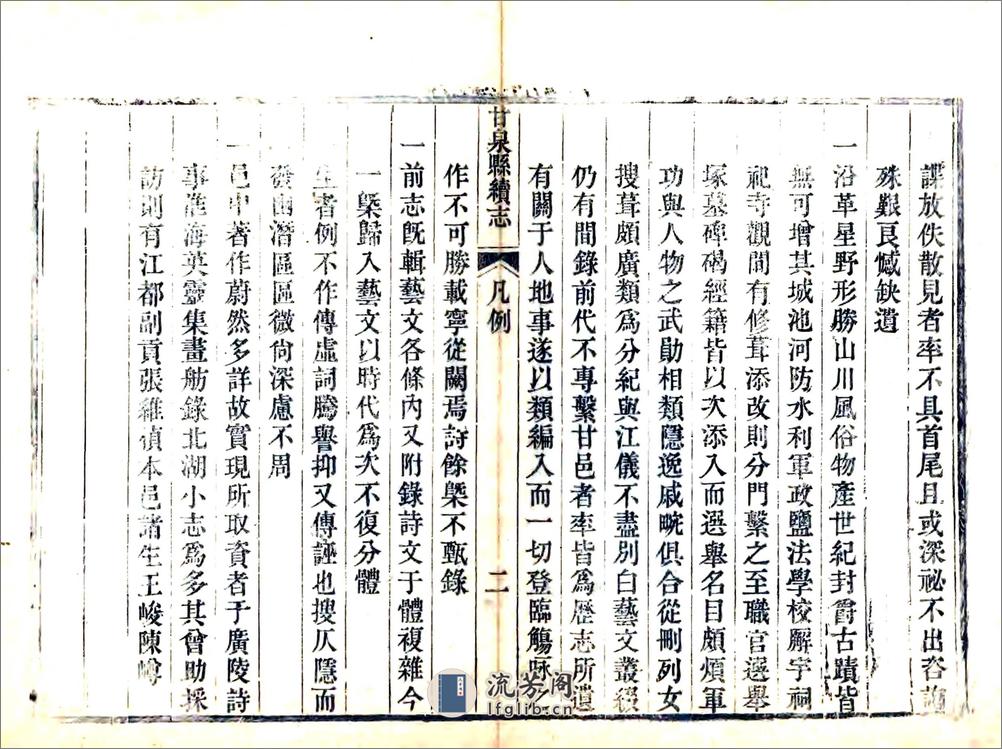 諜放佚散見者率不具首尾且或深祕不出咨詢
殊艱良憾缺遺
一沿革星野形勝山川風俗物產世紀封爵古蹟皆
無可增其城池河防水利軍政鹽法學校廨宇祠
祀寺觀間有修葺添改則分門繫之至職官選舉
塚墓碑碣經籍皆以次添入而選舉名目頗煩軍
功與人物之武勛相類隱逸戚畹俱合從刪列女
搜葺頗廣類爲分紀與江儀不盡別白藝文叢綴
仍有間錄前代不專繫甘邑者率皆爲歷志所遺
有關于人地事遂以類編入而一切登臨觴詠
甘泉縣續志
凡例
二
作不可勝載寧從闕焉詩餘槩不甄錄
一前志旣輯藝文各條內又附錄詩文于體複雜今
一槩歸入藝文以時代爲次不復分體
生者例不作傳虛詞騰譽抑又傳誣也搜仄隱而
發幽潛區區微尙深慮不周
一邑中著作蔚然多詳故實現所取資者于廣陵詩
事淮海英靈集畫舫錄北湖小志爲多其曾助採
訪則有江都副貢張維禎本邑諸生王峻陳嶟
流芳閣
lfglib.cn